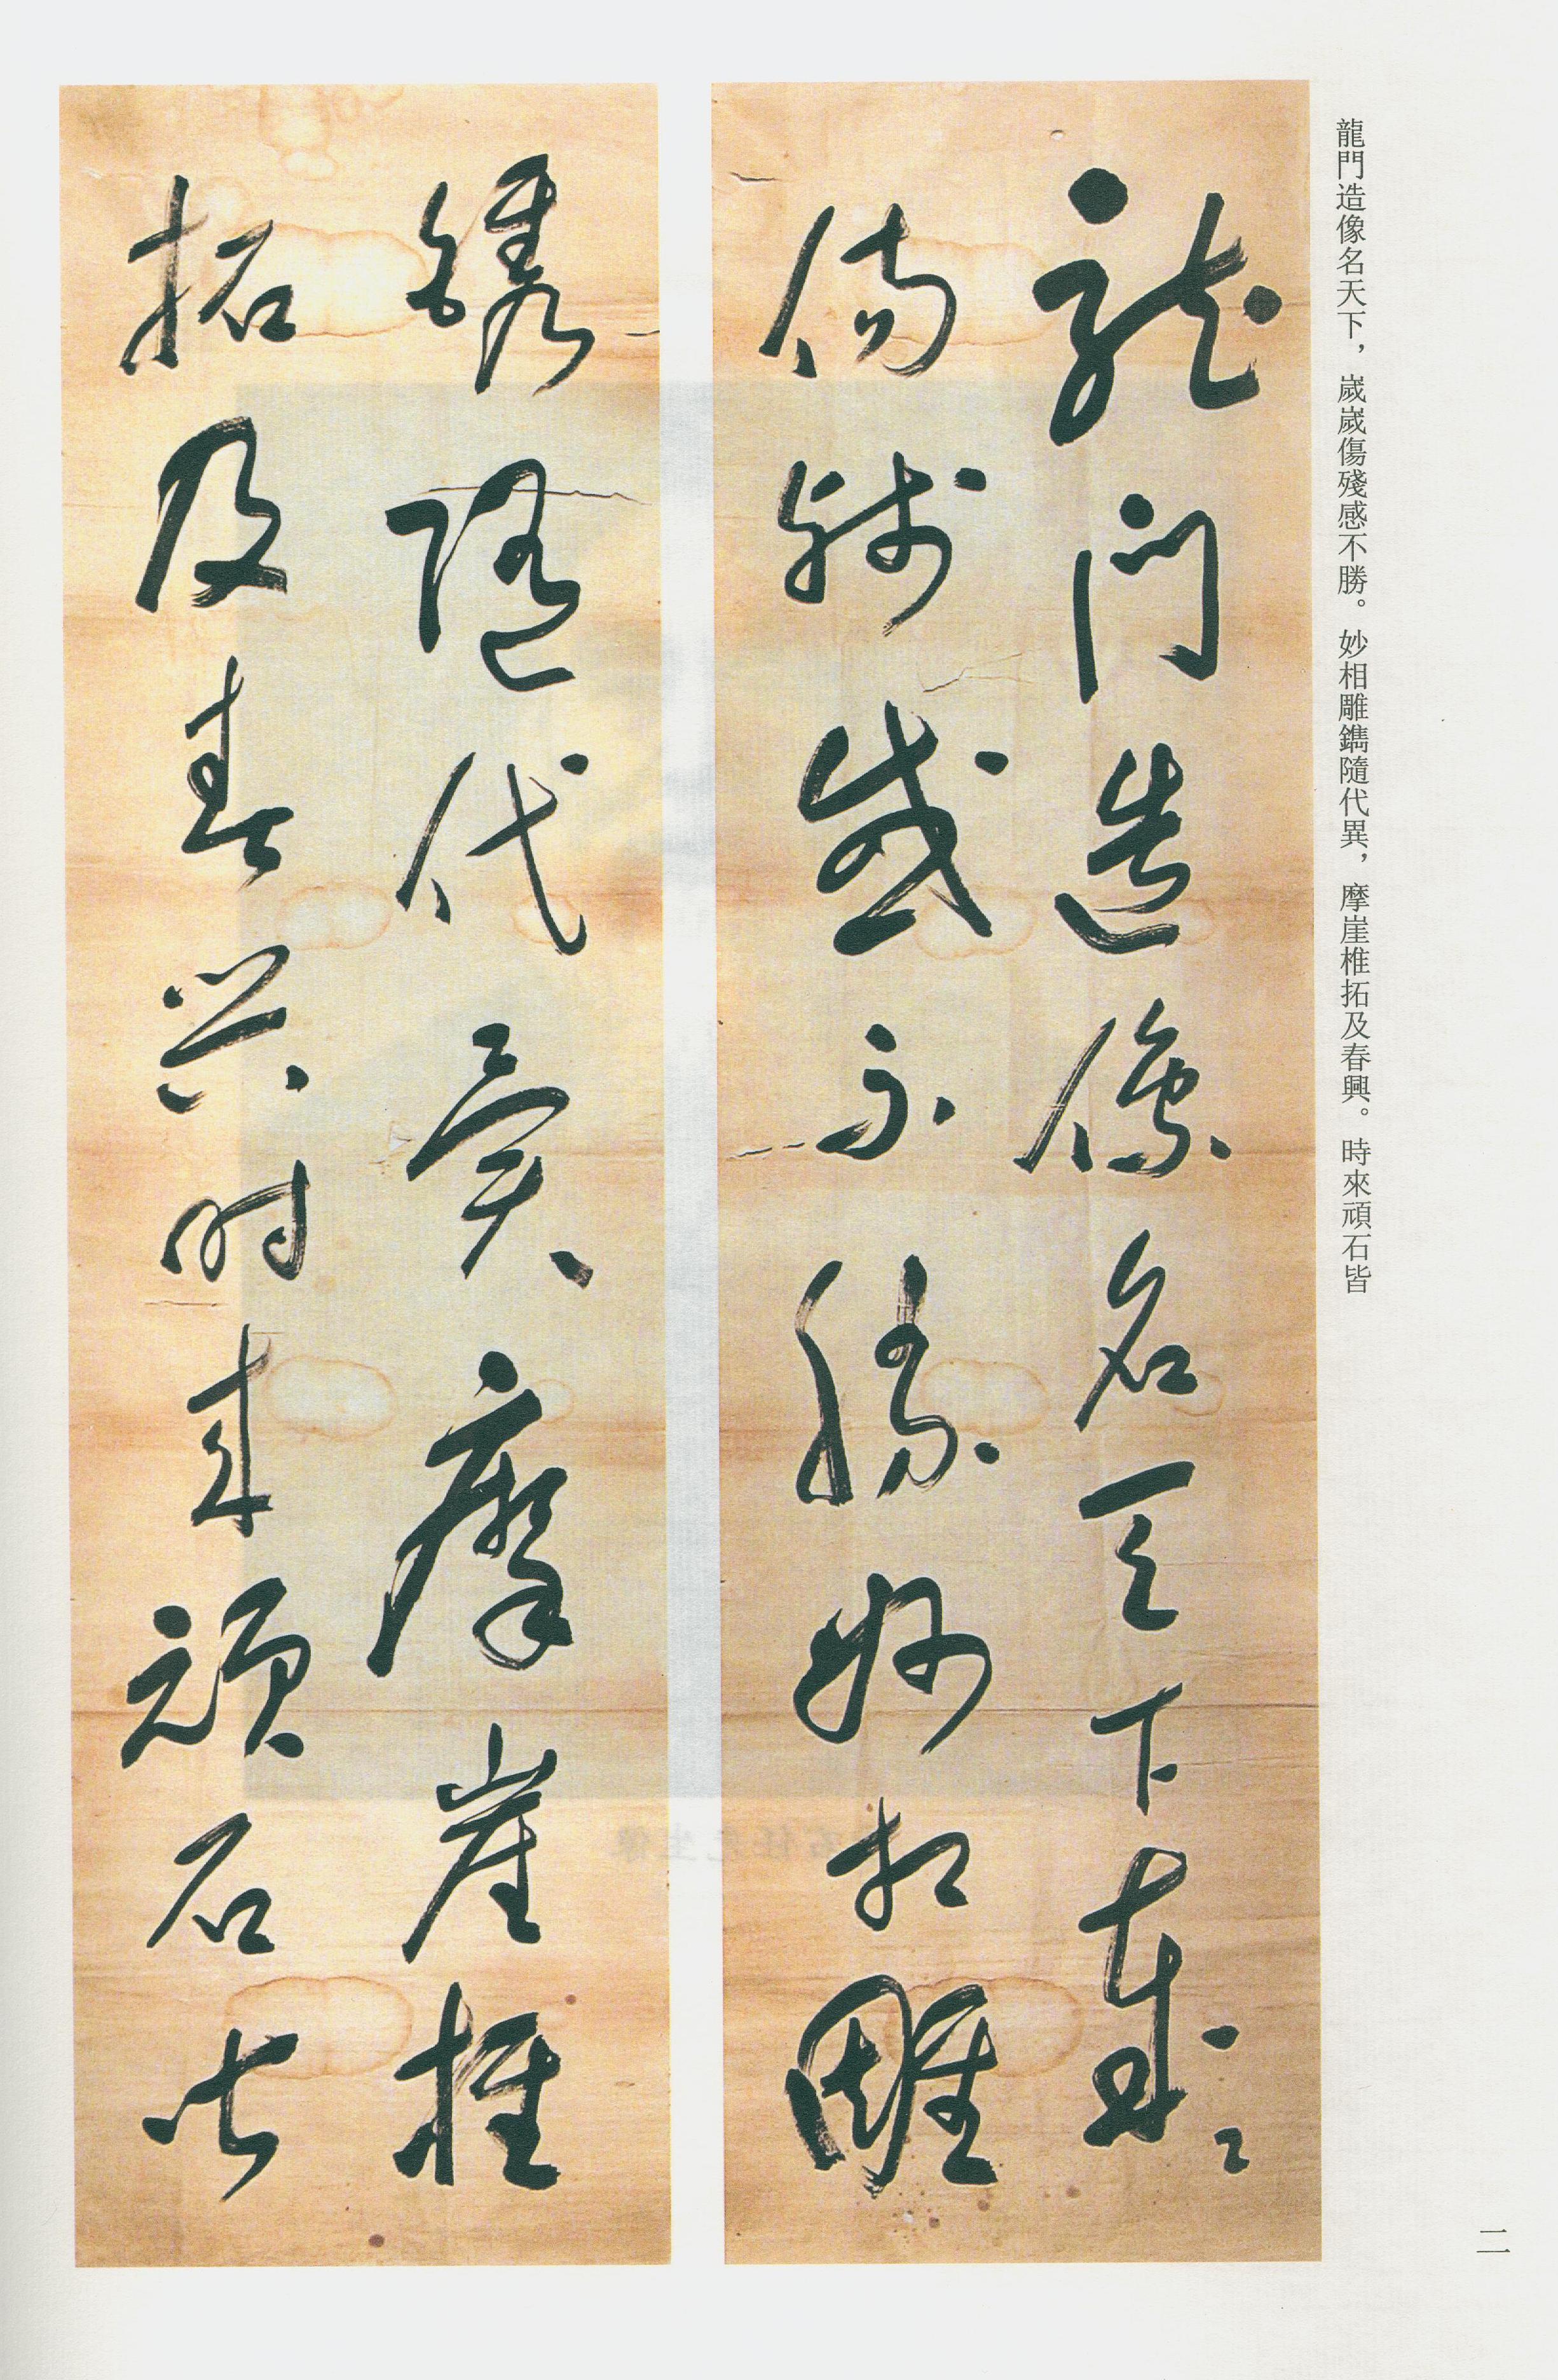 龍門造像名天下，歲歲傷殘感不勝。妙相雕鐫隨代異，摩崖椎拓及春興。時來頑石皆
龍門造像名天下歲〻
傷殘感不勝妙相雕
鐫隨代異摩崖椎
拓及春興時來頑石皆
二